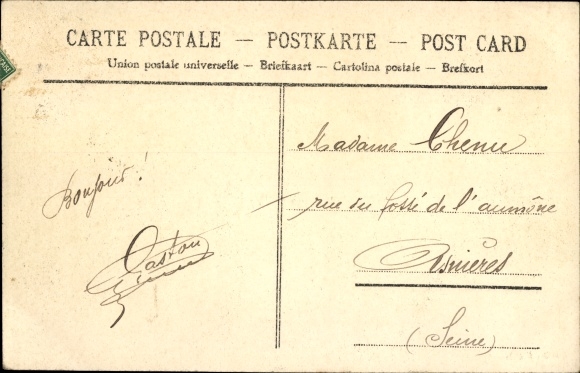 CARTE POSTALE — POSTKARTE — POST CARD
Union postale universelle — Briefkaart — Cartolina postale — Brefkort
Bonjour !
Gaston
Madame Chenu
rue du fossé de l'aumône
Asnières
(Seine)